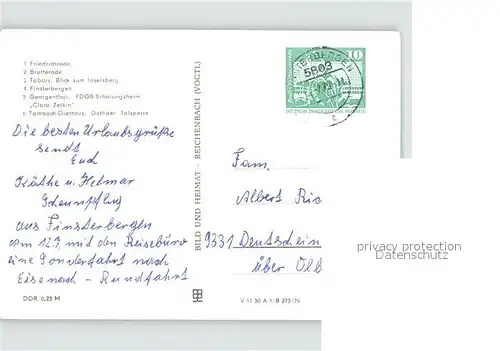 1 Friedrichroda
2 Brotterode
3 Tabarz, Blick zum Inselsberg
4 Finsterbergen
5 Georgenthal, FDGB-Erholungsheim
„Clara Zetkin"
6 Tambach-Dietharz, Gothaer Talsperre
Die besten Urlaubsgrüße
sendt
Euch
Käthe u. Helmar
aus Finsterbergen
am 12.7 mit den Reisebüro
eine Sonderfahrt nach
Eisenach - Rundfahrt
DDR 0,25 M
BILD UND HEIMAT · REICHENBACH (VOGTL)
V 11 50 A 1/B 275/79
5803
10
Fam.
Albert Ric
9331 Deutschein
über Olb
privacy protection
Datenschutz